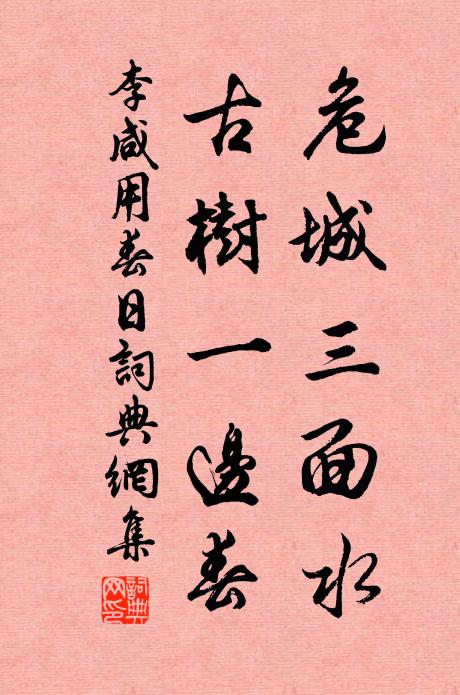 危城三面水
古樹一邊春
李咸用春日詞典網集
詞典
网印